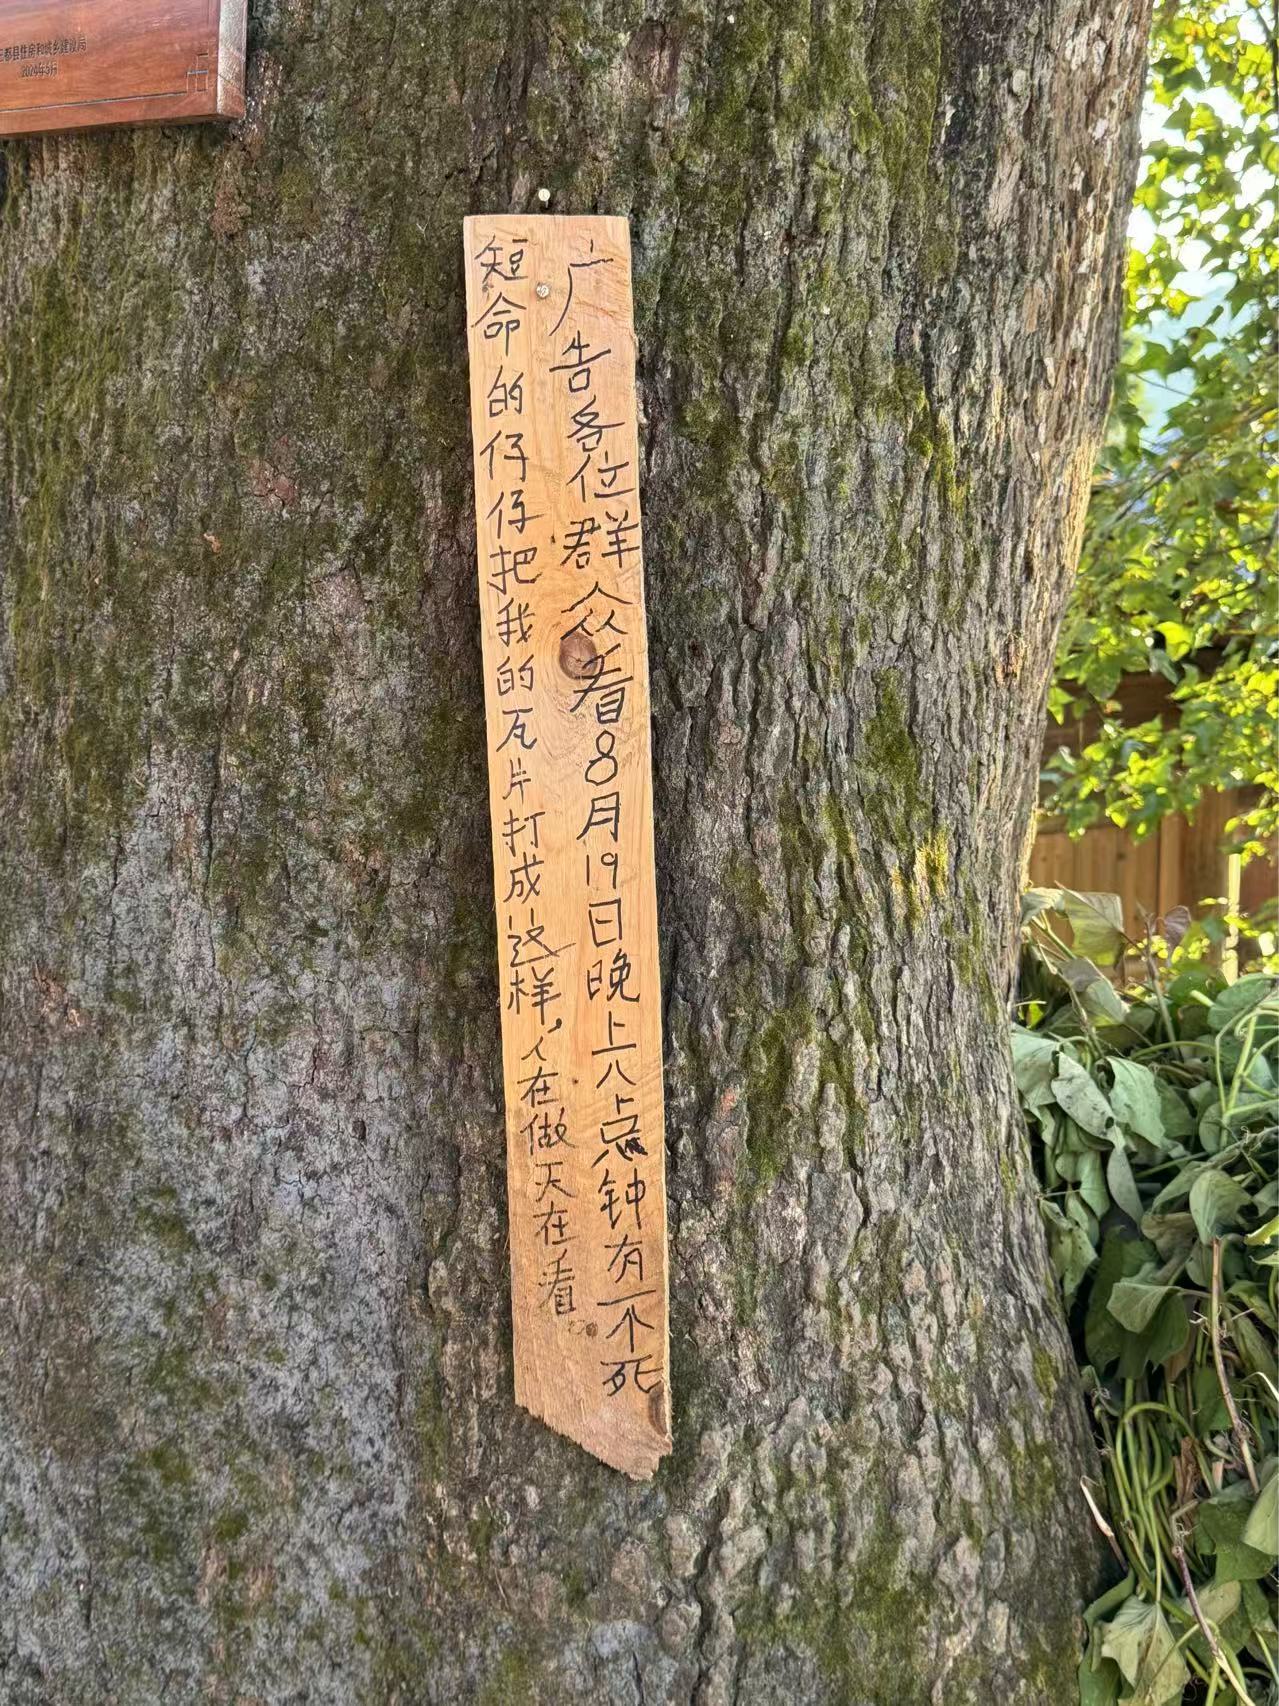 三都县住房和城乡建设局
2024年3月
广告各位群众看8月19日晚上八点钟有一个死
短命的仔仔把我的瓦片打成这样，人在做天在看。